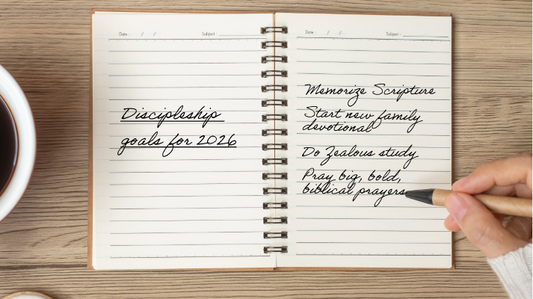 Date: / / Subject:
Discipleship
goals for 2026
Date: / / Subject:
Memorize Scripture
Start new family
devotional
Do Zealous study
Pray big, bold,
biblical prayers